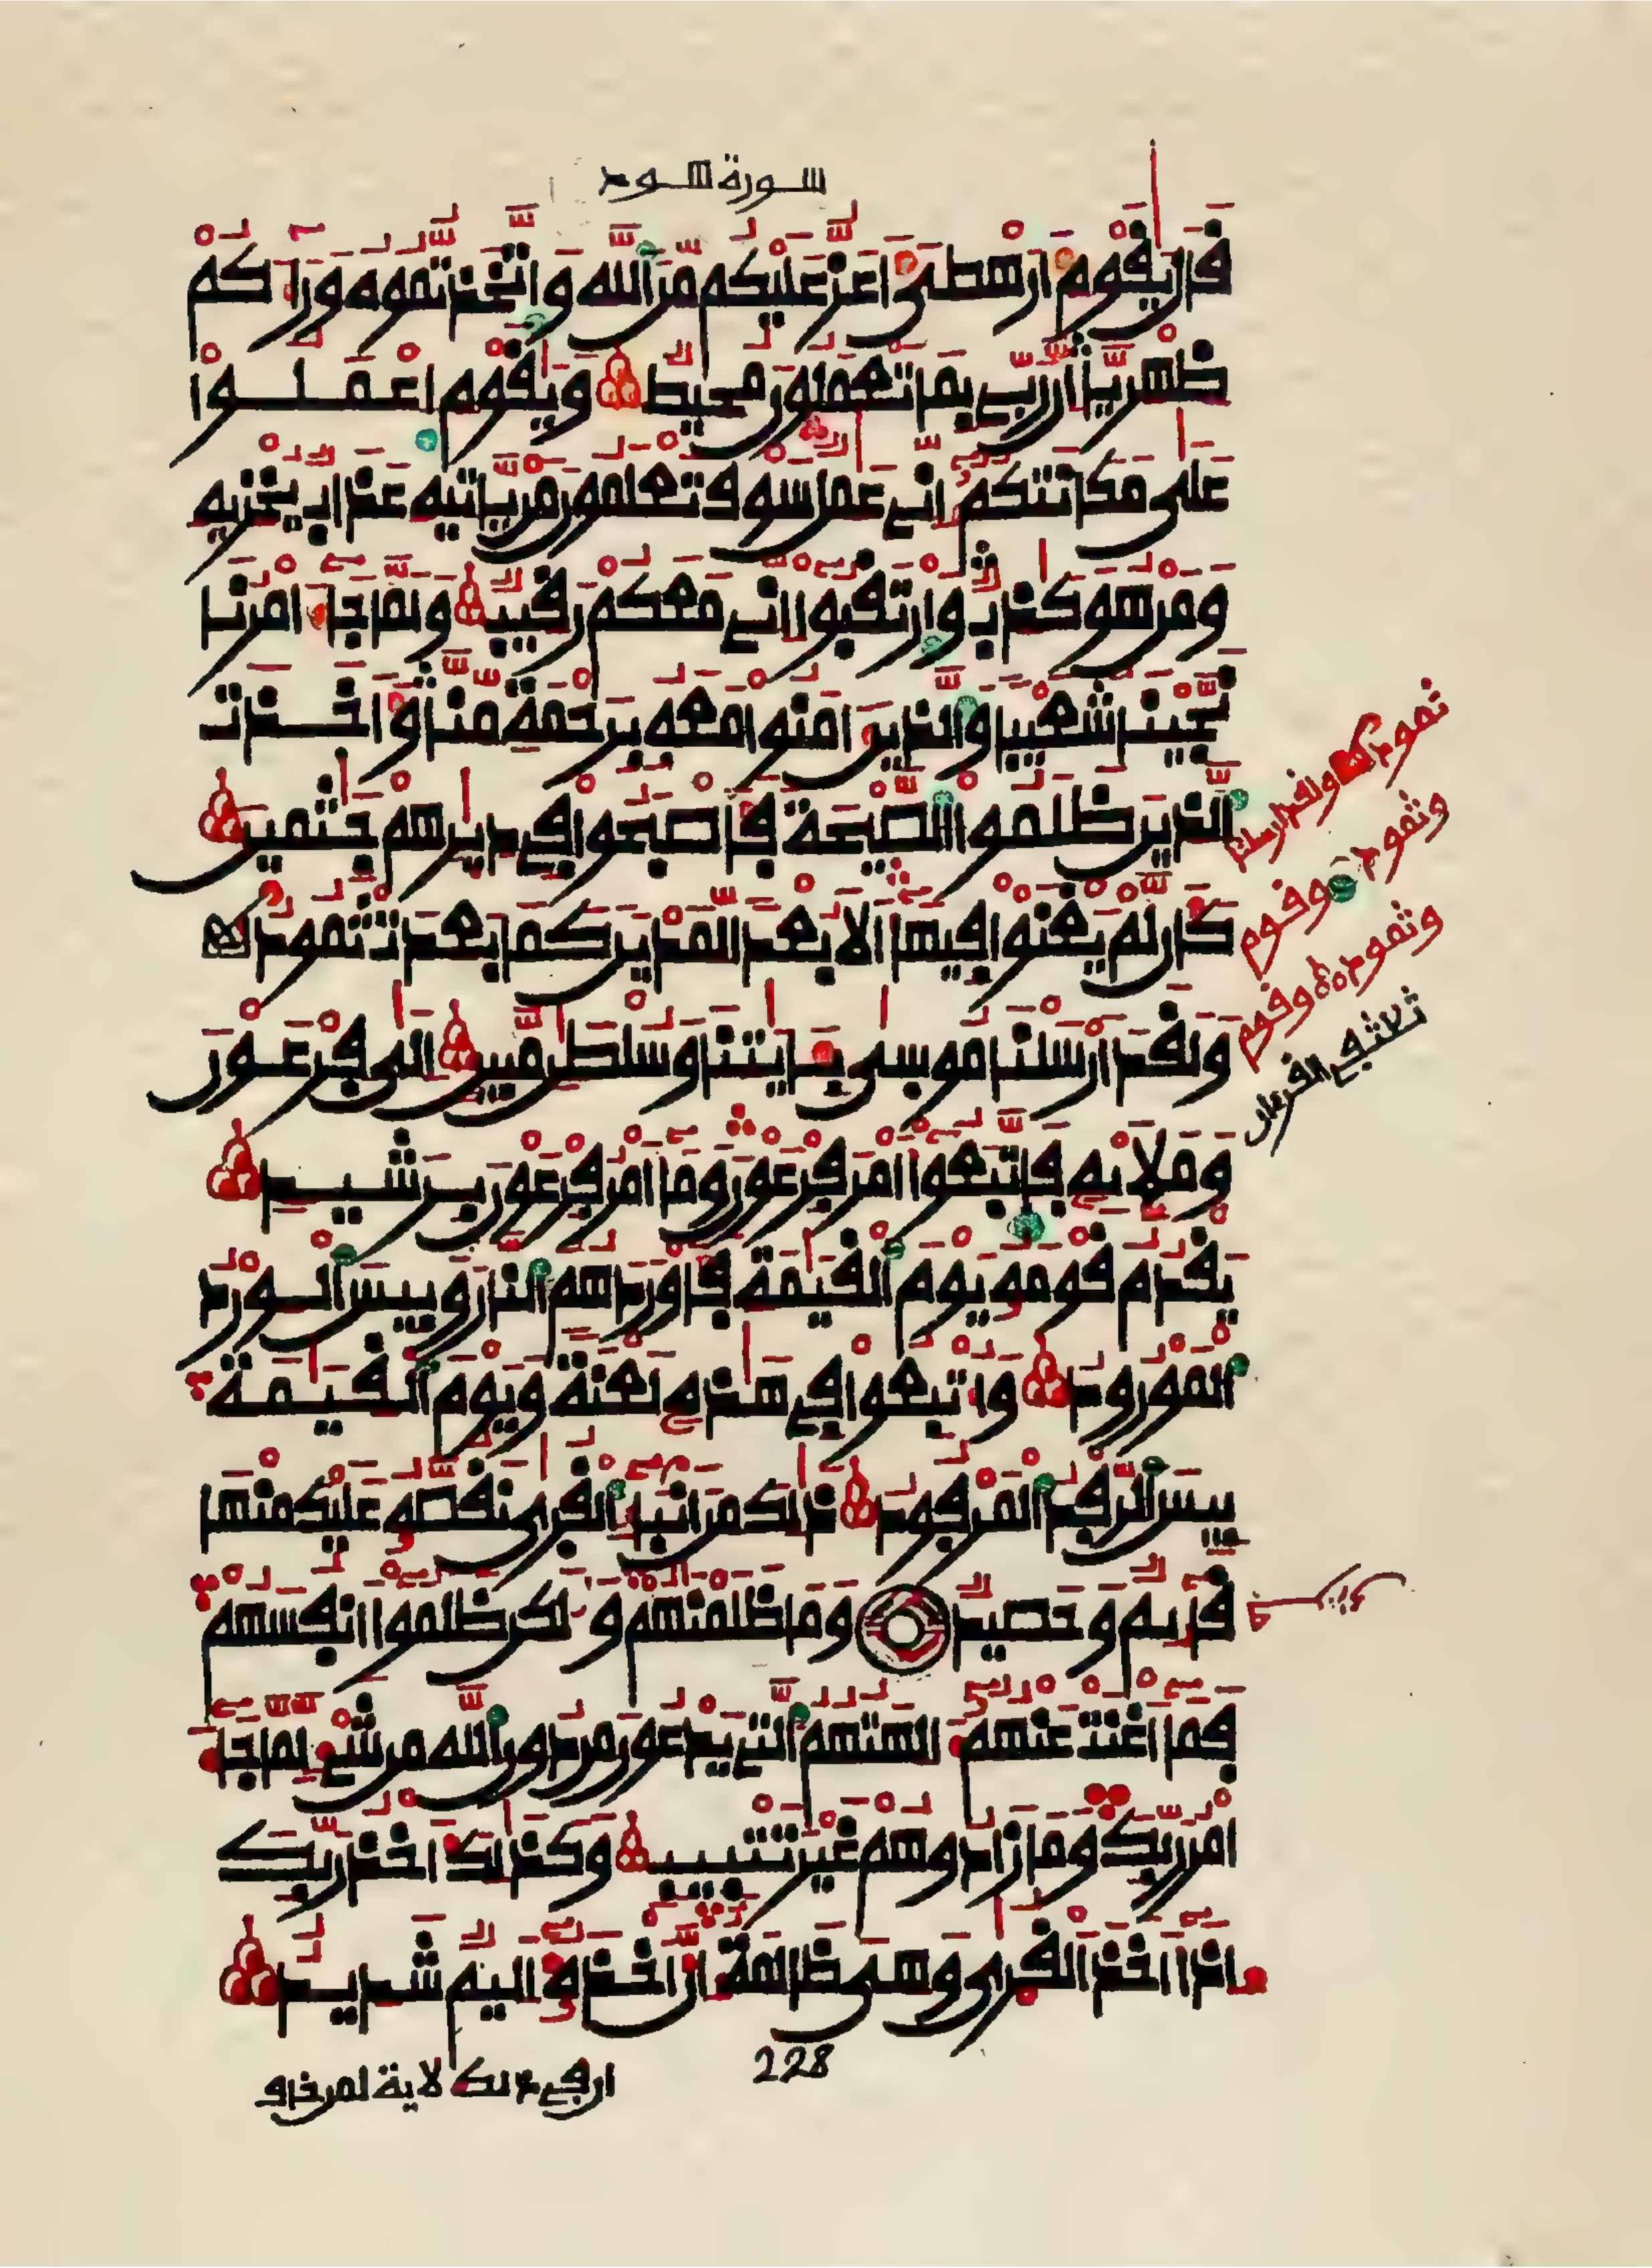 سورة هود
قَالَ يَٰقَوْمِ أَرَهْطِىَ أَعَزُّ عَلَيْكُم مِّنَ ٱللَّهِ وَٱتَّخَذتُّمُوهُ وَرَآءَكُمْ
ظِهْرِيًّا إِنَّ رَبِّى بِمَا تَعْمَلُونَ مُحِيطٌ وَيَٰقَوْمِ ٱعْمَلُوا۟
عَلَىٰ مَكَانَتِكُمُۥٓ إِنِّى عَٰمِلٌ سَوْفَ تَعْلَمُونَ مَن يَأْتِيهِ عَذَابٌ يُخْزِيهِ
وَمَنْ هُوَ كَٰذِبٌ وَٱرْتَقِبُوٓا۟ إِنِّى مَعَكُمْ رَقِيبٌ وَلَمَّا جَآءَ امْرُنَا
نَجَّيْنَا شُعَيْبًا وَٱلَّذِينَ ءَامَنُوا۟ مَعَهُۥ بِرَحْمَةٍ مِّنَّا وَأَخَذَتِ
ٱلَّذِينَ ظَلَمُوا۟ ٱلصَّيْحَةُ فَأَصْبَحُوا۟ فِى دِيَٰرِهِمْ جَٰثِمِينَ
كَأَن لَّمْ يَغْنَوْا۟ فِيهَآ أَلَا بُعْدًا لِّمَدْيَنَ كَمَا بَعِدَتْ ثَمُودُ
وَلَقَدْ أَرْسَلْنَا مُوسَىٰ بِـَٔايَٰتِنَا وَسُلْطَٰنٍ مُّبِينٍ إِلَىٰ فِرْعَوْنَ
وَمَلَإِي۟هِۦ فَٱتَّبَعُوٓا۟ أَمْرَ فِرْعَوْنَ وَمَآ أَمْرُ فِرْعَوْنَ بِرَشِيدٍ
يَقْدُمُ قَوْمَهُۥ يَوْمَ ٱلْقِيَٰمَةِ فَأَوْرَدَهُمُ ٱلنَّارَ وَبِيسَ ٱلْوِرْدُ
ٱلْمَوْرُودُ وَأُتْبِعُوا۟ فِى هَٰذِهِۦ لَعْنَةً وَيَوْمَ ٱلْقِيَٰمَةِ
بِيسَ ٱلرِّفْدُ ٱلْمَرْفُودُ ذَٰلِكَ مِنْ أَنۢبَآءِ ٱلْقُرَىٰ نَقُصُّهُۥ عَلَيْكَ مِنْهَا
قَآئِمٌ وَحَصِيدٌ وَمَا ظَلَمْنَٰهُمْ وَلَٰكِن ظَلَمُوٓا۟ أَنفُسَهُمْ
فَمَآ أَغْنَتْ عَنْهُمُۥٓ ءَالِهَتُهُمُ ٱلَّتِى يَدْعُونَ مِن دُونِ ٱللَّهِ مِن شَىْءٍ لَّمَّا جَآءَ
امْرُ رَبِّكَ وَمَا زَادُوهُمْ غَيْرَ تَتْبِيبٍ وَكَذَٰلِكَ أَخْذُ رَبِّكَ
إِذَآ أَخَذَ ٱلْقُرَىٰ وَهِىَ ظَٰلِمَةٌ إِنَّ أَخْذَهُۥٓ أَلِيمٌ شَدِيدٌ
ثمود ولقد ارسلنا
وثمود وقوم
وثمود وقوم
ثلاثة في القرءان
228
ذلك لاية لمن خاف